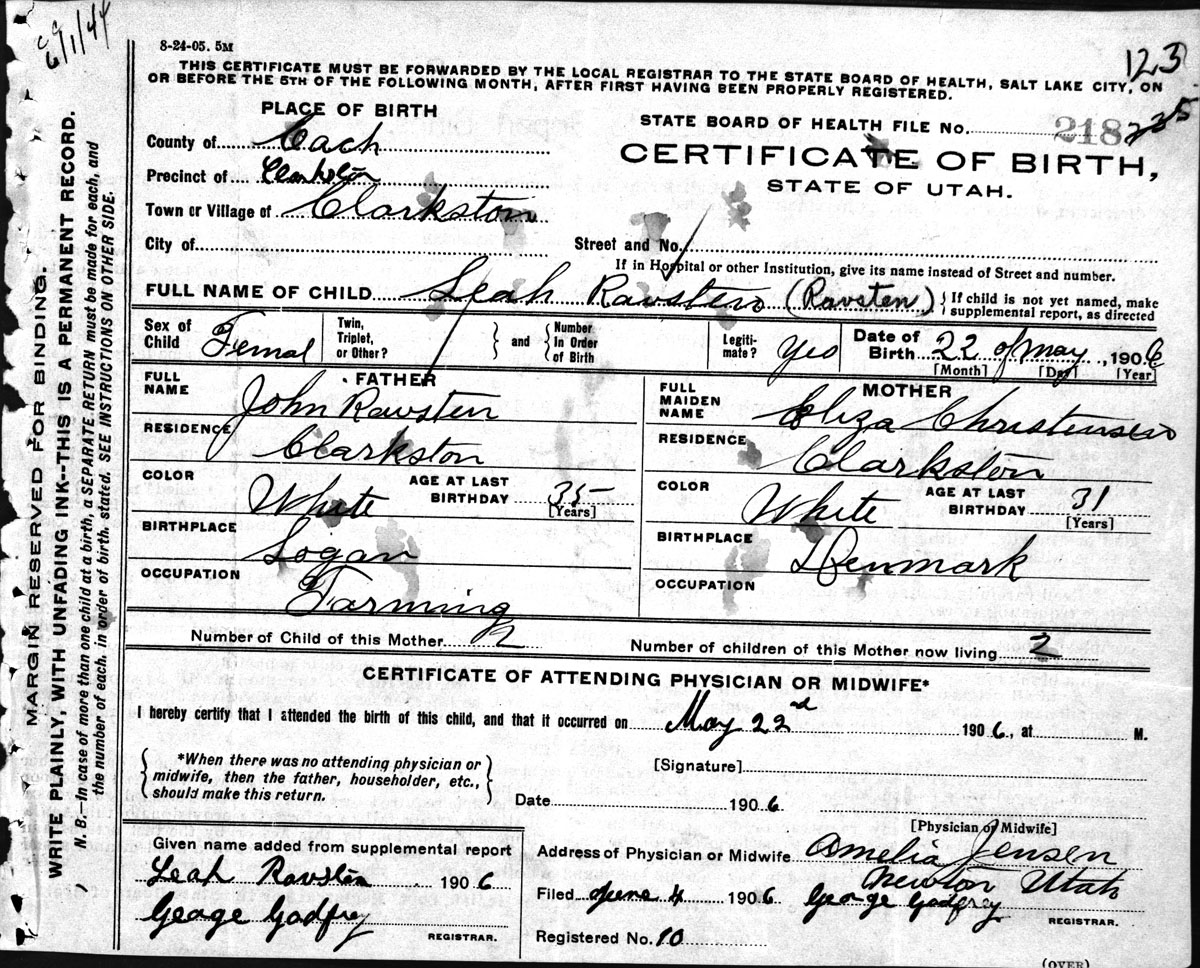 c c
6/1/44
8-24-05. 5M
123
THIS CERTIFICATE MUST BE FORWARDED BY THE LOCAL REGISTRAR TO THE STATE BOARD OF HEALTH, SALT LAKE CITY, ON
OR BEFORE THE 5TH OF THE FOLLOWING MONTH, AFTER FIRST HAVING BEEN PROPERLY REGISTERED.
PLACE OF BIRTH
STATE BOARD OF HEALTH FILE No. 218 225
County of Cach
CERTIFICATE OF BIRTH,
Precinct of Clarkston
STATE OF UTAH.
Town or Village of Clarkston
City of
Street and No.
If in Hospital or other Institution, give its name instead of Street and number.
FULL NAME OF CHILD Leah Ravsten (Ravsten) { If child is not yet named, make
supplemental report, as directed
Sex of Child Femal
Twin, Triplet, or Other? } and { Number In Order of Birth
Legiti-mate? Yes
Date of Birth 22 of May, 1906
[Month] [Day] [Year]
FATHER
FULL NAME John Ravsten
RESIDENCE Clarkston
COLOR White
AGE AT LAST BIRTHDAY 35
[Years]
BIRTHPLACE Logan
OCCUPATION Farming
MOTHER
FULL MAIDEN NAME Eliza Christensen
RESIDENCE Clarkston
COLOR White
AGE AT LAST BIRTHDAY 31
[Years]
BIRTHPLACE Denmark
OCCUPATION
Number of Child of this Mother 2
Number of children of this Mother now living 2
CERTIFICATE OF ATTENDING PHYSICIAN OR MIDWIFE*
I hereby certify that I attended the birth of this child, and that it occurred on May 22nd 1906, at M.
{ *When there was no attending physician or
midwife, then the father, householder, etc.,
should make this return. }
[Signature]
Date 1906
[Physician or Midwife]
Given name added from supplemental report
Leah Ravsten 1906
George Godfrey
REGISTRAR.
Address of Physician or Midwife Amelia Jensen
Newton Utah
Filed June 4 1906 George Godfrey
REGISTRAR.
Registered No. 10
(OVER)
MARGIN RESERVED FOR BINDING.
WRITE PLAINLY, WITH UNFADING INK--THIS IS A PERMANENT RECORD.
N. B.--In case of more than one child at a birth, a SEPARATE RETURN must be made for each, and
the number of each, in order of birth, stated. SEE INSTRUCTIONS ON OTHER SIDE.